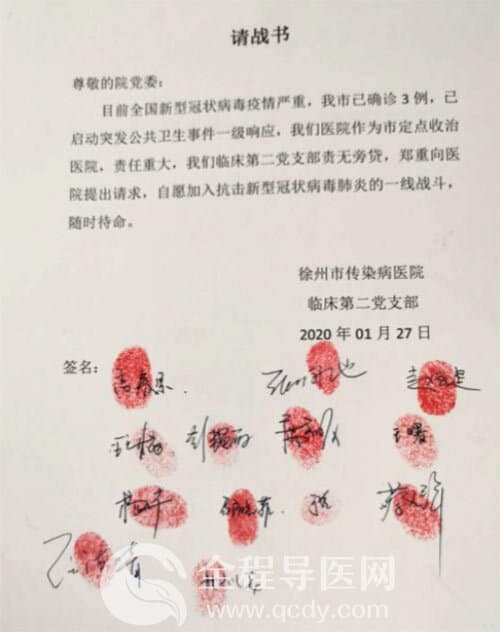 请战书
尊敬的院党委：
目前全国新型冠状病毒疫情严重，我市已确诊 3 例，已
启动突发公共卫生事件一级响应，我们医院作为市定点收治
医院，责任重大，我们临床第二党支部责无旁贷，郑重向医
院提出请求，自愿加入抗击新型冠状病毒肺炎的一线战斗，
随时待命。
徐州市传染病医院
临床第二党支部
2020 年 01 月 27 日
签名：
全程导医网
www.qcdy.com